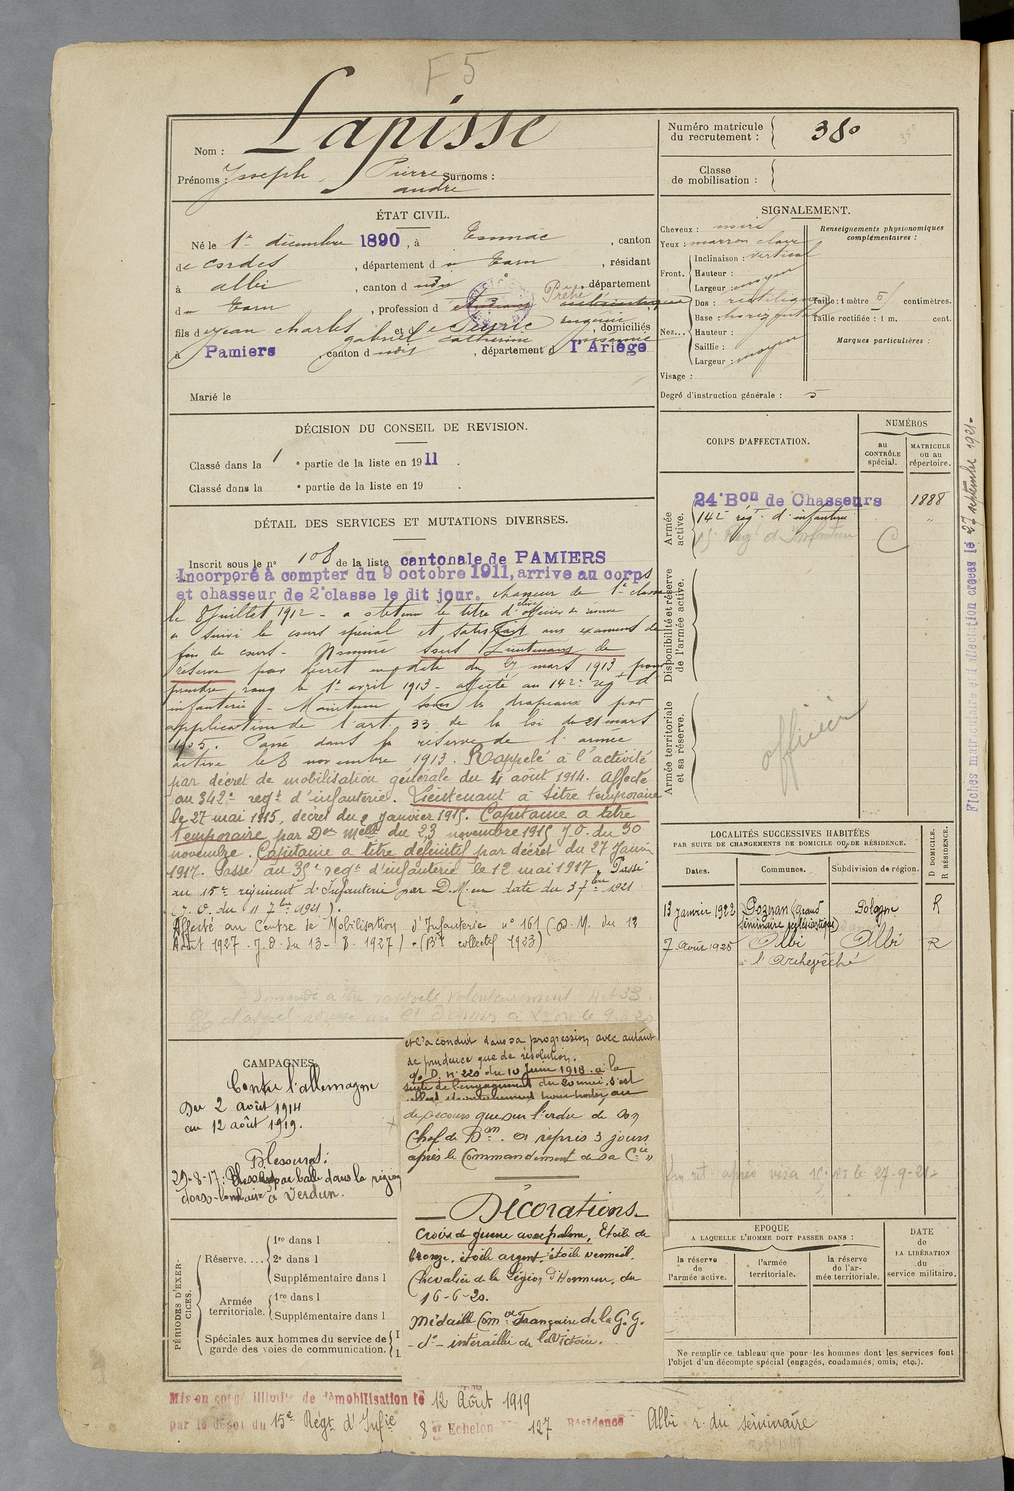 F 5
Nom : Lapisse
Prénoms : Joseph Pierre Surnoms :
andré
Numéro matricule du recrutement : 380
Classe de mobilisation :
ÉTAT CIVIL.
Né le 1er décembre 1890, à , canton
de Cordes , département du Tarn , résidant
à albi , canton d , département
du Tarn , profession d Prêtre
fils de Jean charles gabriel et de catherine , domiciliés
à Pamiers , canton d , département d l'Ariège
Marié le
SIGNALEMENT.
Cheveux : noirs
Yeux : marron clair
Front. Inclinaison : vertical
Hauteur :
Largeur : moyen
Nez... Dos : rectiligne
Base : horizontal
Hauteur :
Saillie :
Largeur : moyen
Visage :
Degré d'instruction générale : 5
Renseignements physionomiques complémentaires :
Taille : 1 mètre centimètres.
Taille rectifiée : 1 m. cent.
Marques particulières :
DÉCISION DU CONSEIL DE REVISION.
Classé dans la 1e partie de la liste en 1911.
Classé dans la e partie de la liste en 19 .
DÉTAIL DES SERVICES ET MUTATIONS DIVERSES.
Inscrit sous le n° 108 de la liste cantonale de PAMIERS
Incorporé à compter du 9 octobre 1911, arrive au corps
et chasseur de 2e classe le dit jour. chasseur de 1e classe
le 8 juillet 1912 - a obtenu le titre d'élève officier de réserve
a suivi le cours spécial et satisfait aux examens de
fin de cours - Nommé sous Lieutenant de
réserve par décret en date du 27 mars 1913 pour
prendre rang le 1er avril 1913 - affecté au 142e regt d'
infanterie - Maintenu sous les drapeaux par
application de l'art. 33 de la loi du 21 mars
1905. Passé dans la réserve de l'armée
active le 8 novembre 1913. Rappelé à l'activité
par décret de mobilisation générale du août 1914. Affecté
au 342e regt d'infanterie. Lieutenant à titre temporaire
le 27 mai 1915, décret du janvier 1915. Capitaine à titre
temporaire par Don Melle du 23 novembre 1915 J.O. du 30
novembre. Capitaine à titre définitif par décret du 27 Janvier
1917. Passé au 35e regt d'infanterie le 12 mai 1917. Passé
au 15e régiment d'Infanterie par D.M. en date du 3 7bre 1921
(J.O. du 11 7bre 1921).
Affecté au Centre de Mobilisation d'Infanterie n° 161 (D.M. du 12
Août 1927 - J.O. du 13-8-1927) - (Bn collectif 1923)
CORPS D'AFFECTATION.
NUMÉROS
au CONTRÔLE spécial.
MATRICULE ou au répertoire.
Armée active.
24e Bon de Chasseurs 1888
142e régt d'infanterie "
15e Regt d'Infanterie
Disponibilité et réserve de l'armée active.
Armée territoriale et sa réserve.
officier
Fiches matriculaire et d'affectation créées le 27 septembre 1921.
LOCALITÉS SUCCESSIVES HABITÉES
PAR SUITE DE CHANGEMENTS DE DOMICILE OU DE RÉSIDENCE.
Dates. Communes. Subdivision de région. D DOMICILE. R RÉSIDENCE.
13 janvier 1922 Poznan (Grand séminaire ecclésiastique) Pologne R
7 Août 1925 Albi à l'Archevêché Albi R
CAMPAGNES
Contre l'allemagne
Du 2 août 1914
au 12 août 1919.
Blessures :
29-8-17: par balle dans la région
dorso-lombaire à Verdun.
et l'a conduit dans sa progression avec autant
de prudence que de résolution.
O. D. N° 220 du 10 Juin 1918. à la
suite de l'engagement du 20 mai, s'est
de secours que sur l'ordre de son
Chef de Bon. a repris 3 jours
après le Commandement de sa Cie "
Décorations
Croix de guerre avec palme, Etoile de
bronze, étoile argent, étoile vermeil.
Chevalier de la Légion d'Honneur, du
16-6-20.
Médaille Comve Française de la G.G.
- do - interalliée de la Victoire.
PÉRIODES D'EXERCICES.
Réserve....
1re dans l
2e dans l
Supplémentaire dans l
Armée territoriale.
1re dans l
Supplémentaire dans l
Spéciales aux hommes du service de garde des voies de communication.
EPOQUE
A LAQUELLE L'HOMME DOIT PASSER DANS :
la réserve de l'armée active.
l'armée territoriale.
la réserve de l'armée territoriale.
DATE de LA LIBÉRATION du service militaire.
Ne remplir ce tableau que pour les hommes dont les services font
l'objet d'un décompte spécial (engagés, condamnés, omis, etc.).
Mis en congé illimité de démobilisation le 12 Août 1919
par le dépôt du 15e Régt d'Infie 8e Echelon 127 Résidence Albi r. du séminaire